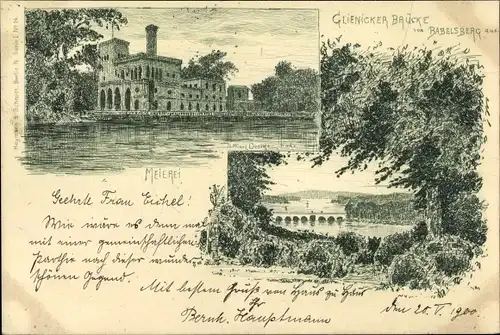 GLIENICKER BRÜCKE
VON BABELSBERG AUS.
MEIEREI
Geehrte Frau Eichel!
Wie wäre es denn mal
mit einer gemeinschaftlichen
Parthie nach dieser wunder-
schönen Gegend.
Mit bestem Gruß von Haus zu Haus
Ihr
Bernh. Hauptmann
den 20. V. 1900